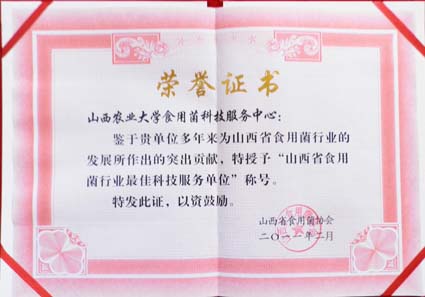 荣誉证书
山西农业大学食用菌科技服务中心：
鉴于贵单位多年来为山西省食用菌行业的
发展所作出的突出贡献，特授予“山西省食用
菌行业最佳科技服务单位”称号。
特发此证，以资鼓励。
山西省食用菌协会
二〇一一年二月